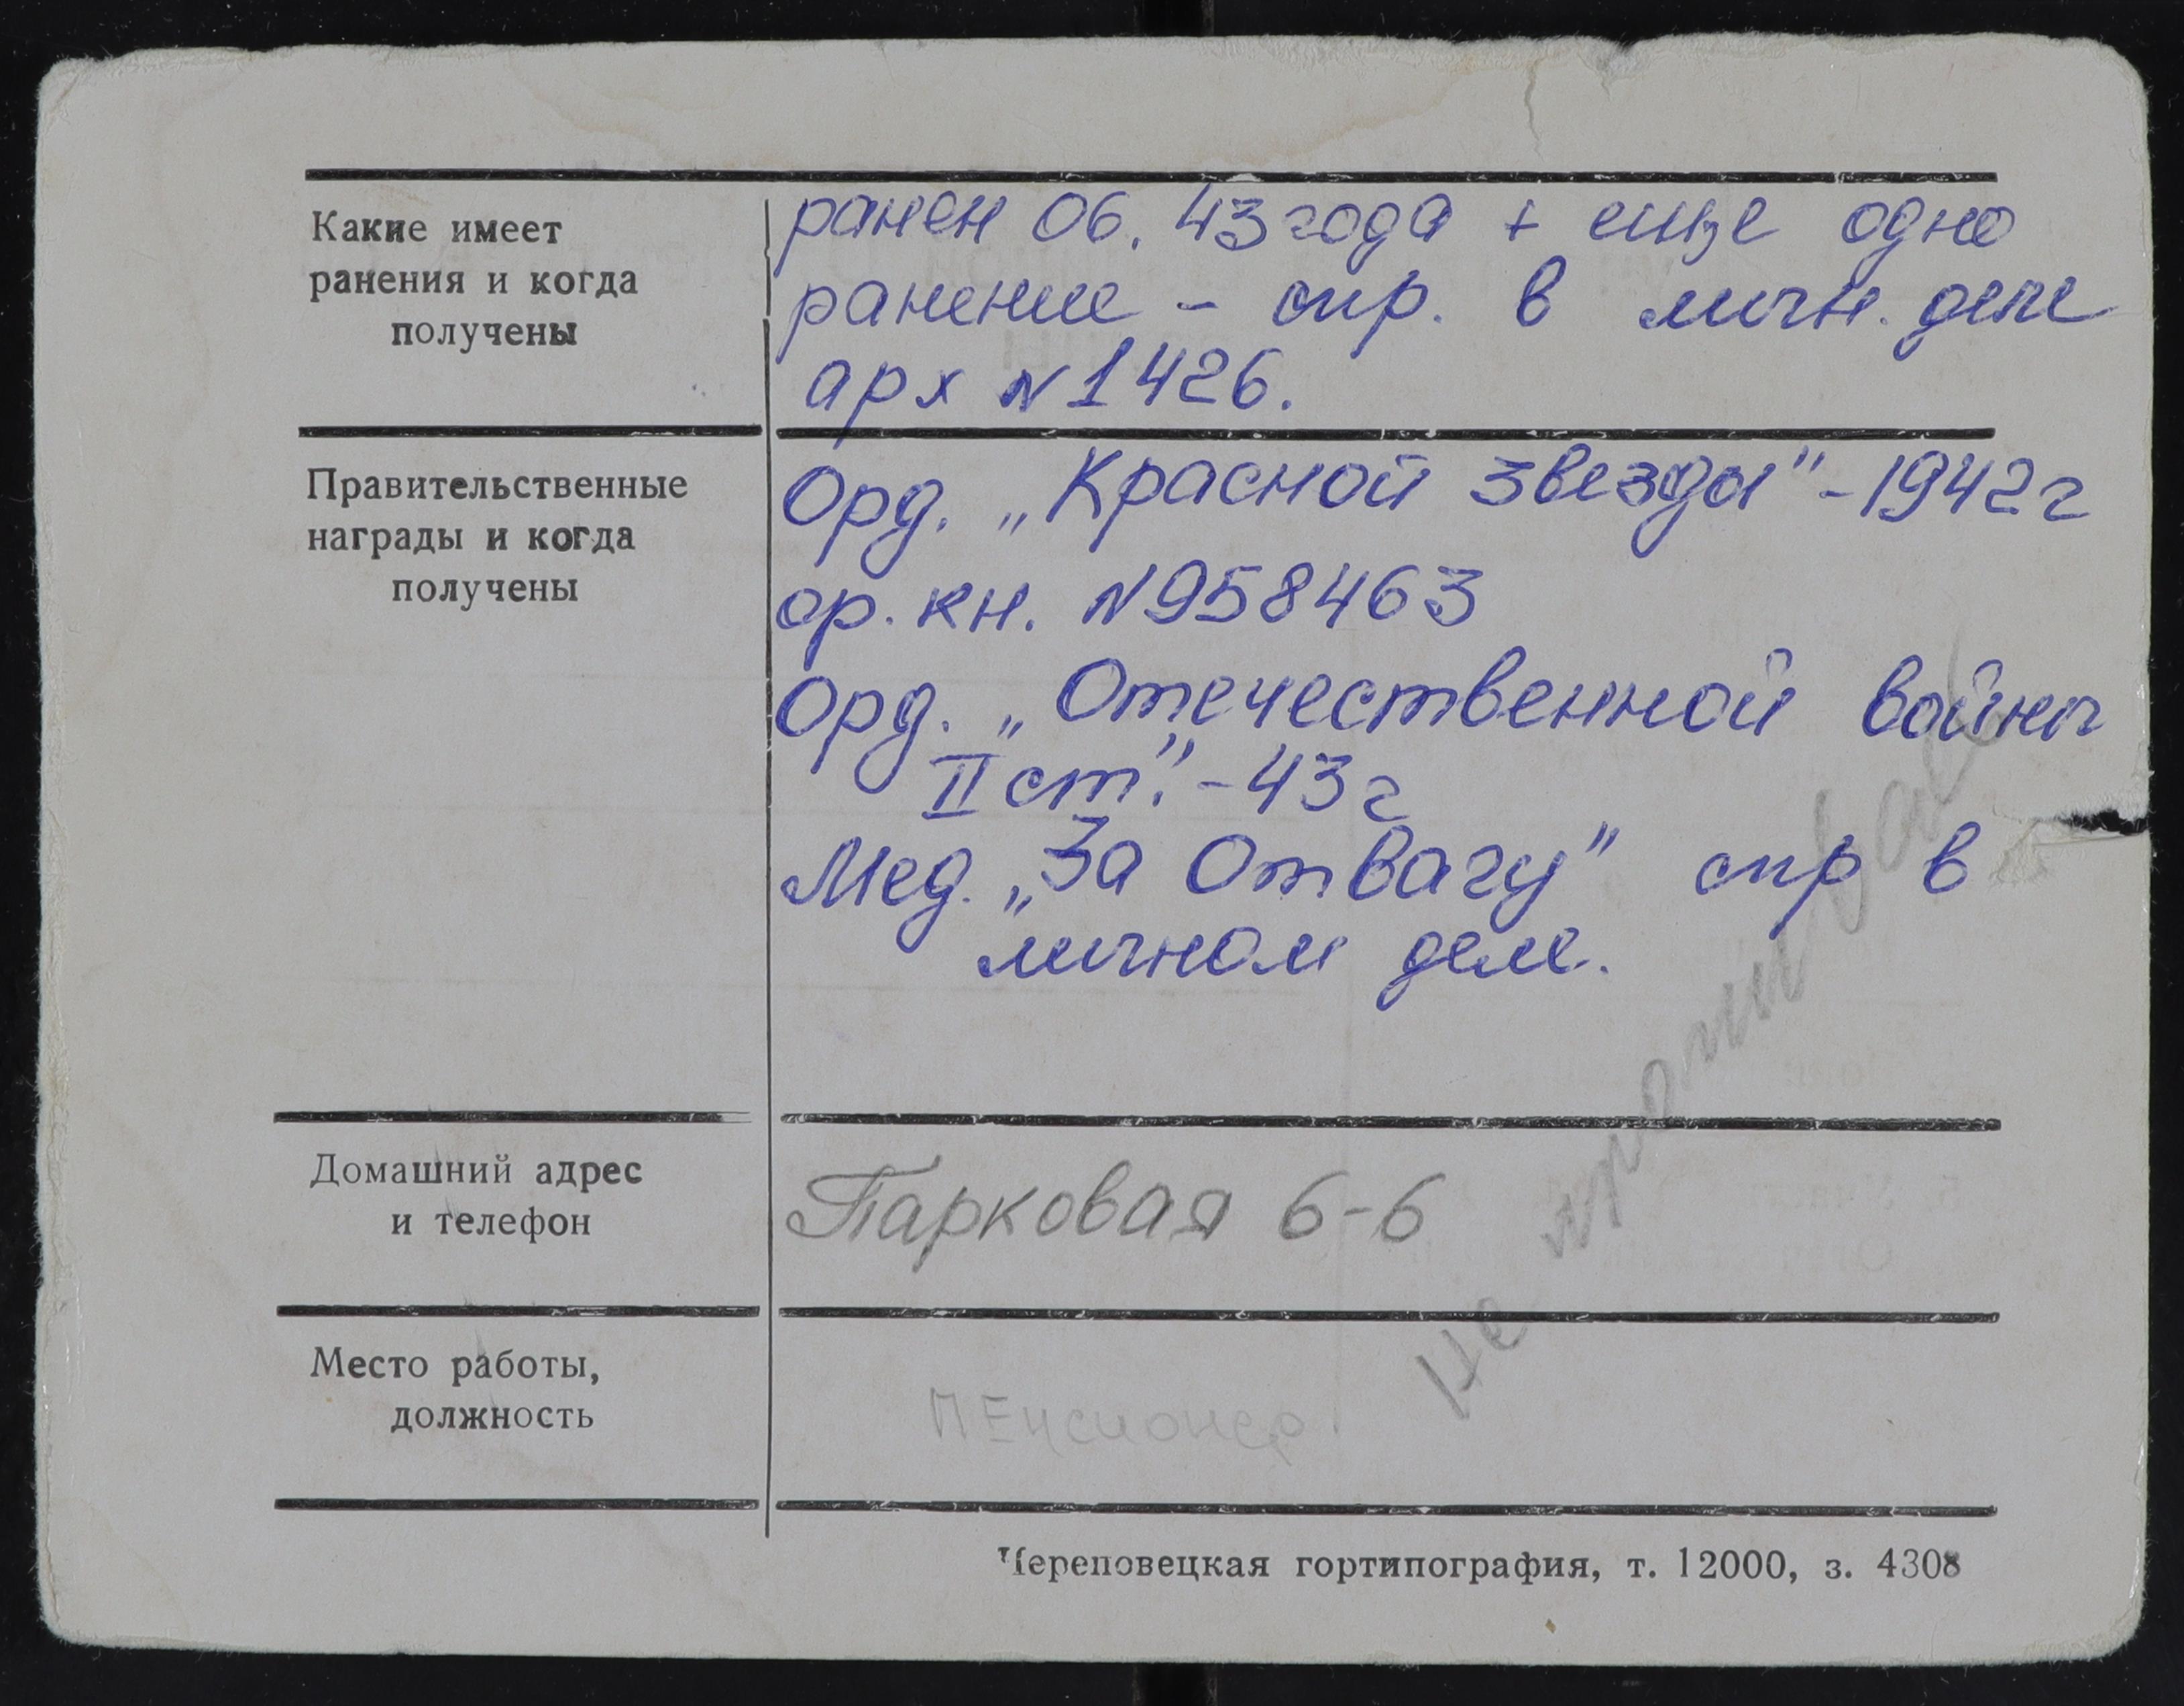 Какие имеет
ранения и когда
получены
ранен 06. 43 года + еще одно
ранение - спр. в личн. деле
арх N 1426.
Правительственные
награды и когда
получены
Орд. „Красной звезды" - 1942 г
ор. кн. N 958463
Орд. „Отечественной войны
II ст." - 43 г
Мед. „За Отвагу" спр в
личном деле.
Домашний адрес
и телефон
Парковая 6-6
Место работы,
должность
ПЕнсионер
Не
Череповецкая гортипография, т. 12000, з. 4308